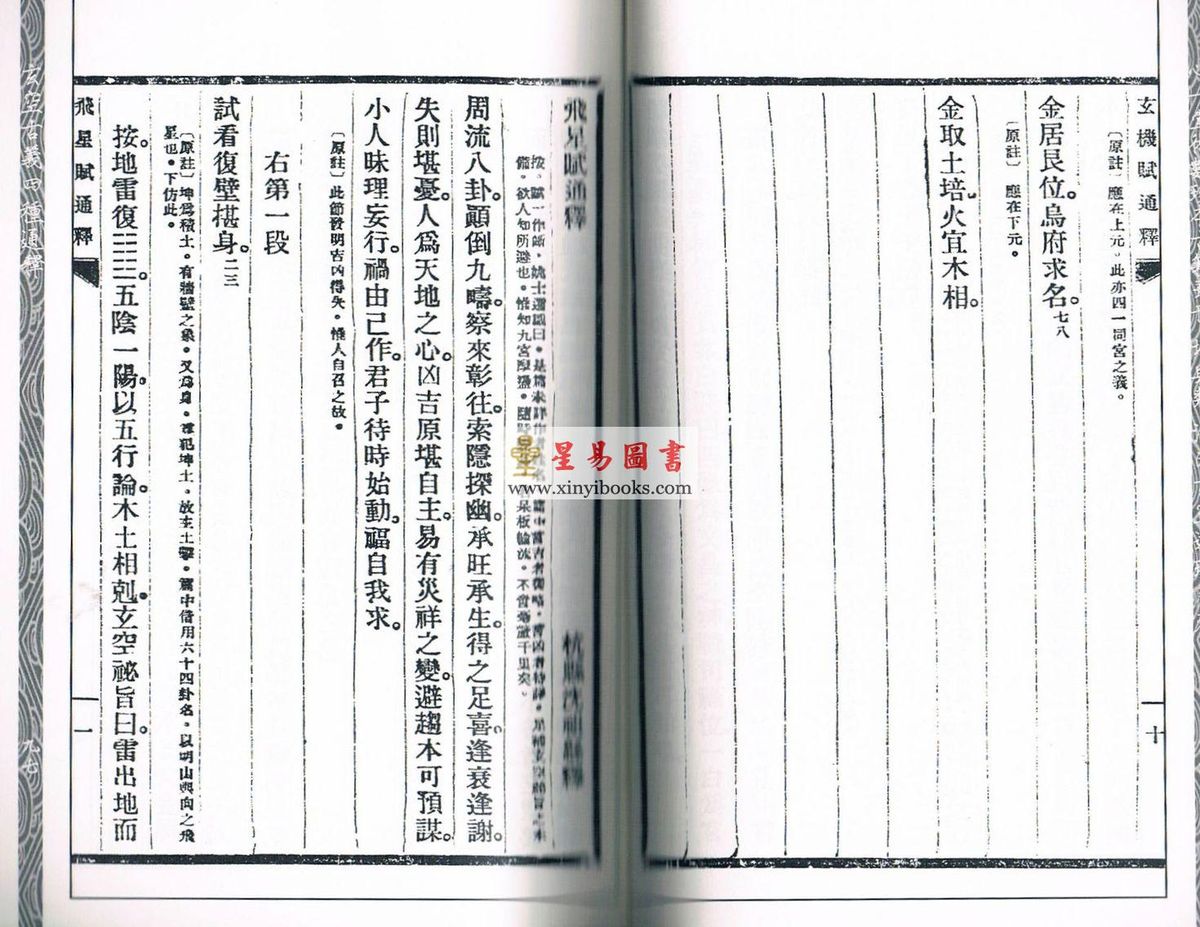 玄機賦通釋
十
〔原註〕應在上元。此亦四一同宮之義。
金居艮位。烏府求名。七八
〔原註〕應在下元。
金取土培。火宜木相。
飛星賦通釋
按。賦一作
備。欲人知所避也。惟知九宮
不啻毫謬千里矣。
周流八卦。顛倒九疇。察來彰往。索隱探幽。承旺承生。得之足喜。逢衰逢謝。
失則堪憂。人爲天地之心。凶吉原堪自主。易有災祥之變。避趨本可預謀。
小人昧理妄行。禍由己作。君子待時始動。福自我求。
〔原註〕此節發明吉凶得失。惟人自召之故。
右第一段
試看復壁揕身。二三
〔原註〕坤爲積土。有牆壁之象。又爲身。震犯坤土。故主土擊。篇中借用六十四卦名。以明山與向之飛
星也。下仿此。
按。地雷復。五陰一陽。以五行論。木土相剋。玄空祕旨曰。雷出地而
飛星賦通釋
一
玄空古義四種通釋
九七
星易圖書
www.xinyibooks.com